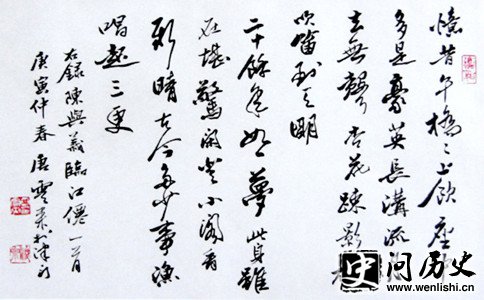 憶昔午橋〻上飲座
多是豪英長溝流
去無聲杏花疎影
吹笛到天明
二十餘年如一夢此身雖
在堪驚閒登小閣看
新晴古今多少事漁
唱起三更
右録陳與義臨江僊一首
庚寅仲春唐雲來於津
史 问历史
www.wenlishi.cn